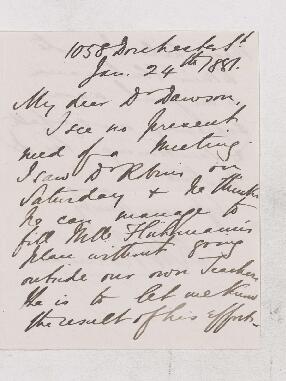 1058 Dorchester St
Jan. 24th 1881.
My dear Dr Dawson,
I see no present
need of a meeting.
I saw Dr Robins on
Saturday & he thinks
he can manage to
fill Mlle
plan without going
outside our own Teachers
He is to let me know
the result of his efforts.